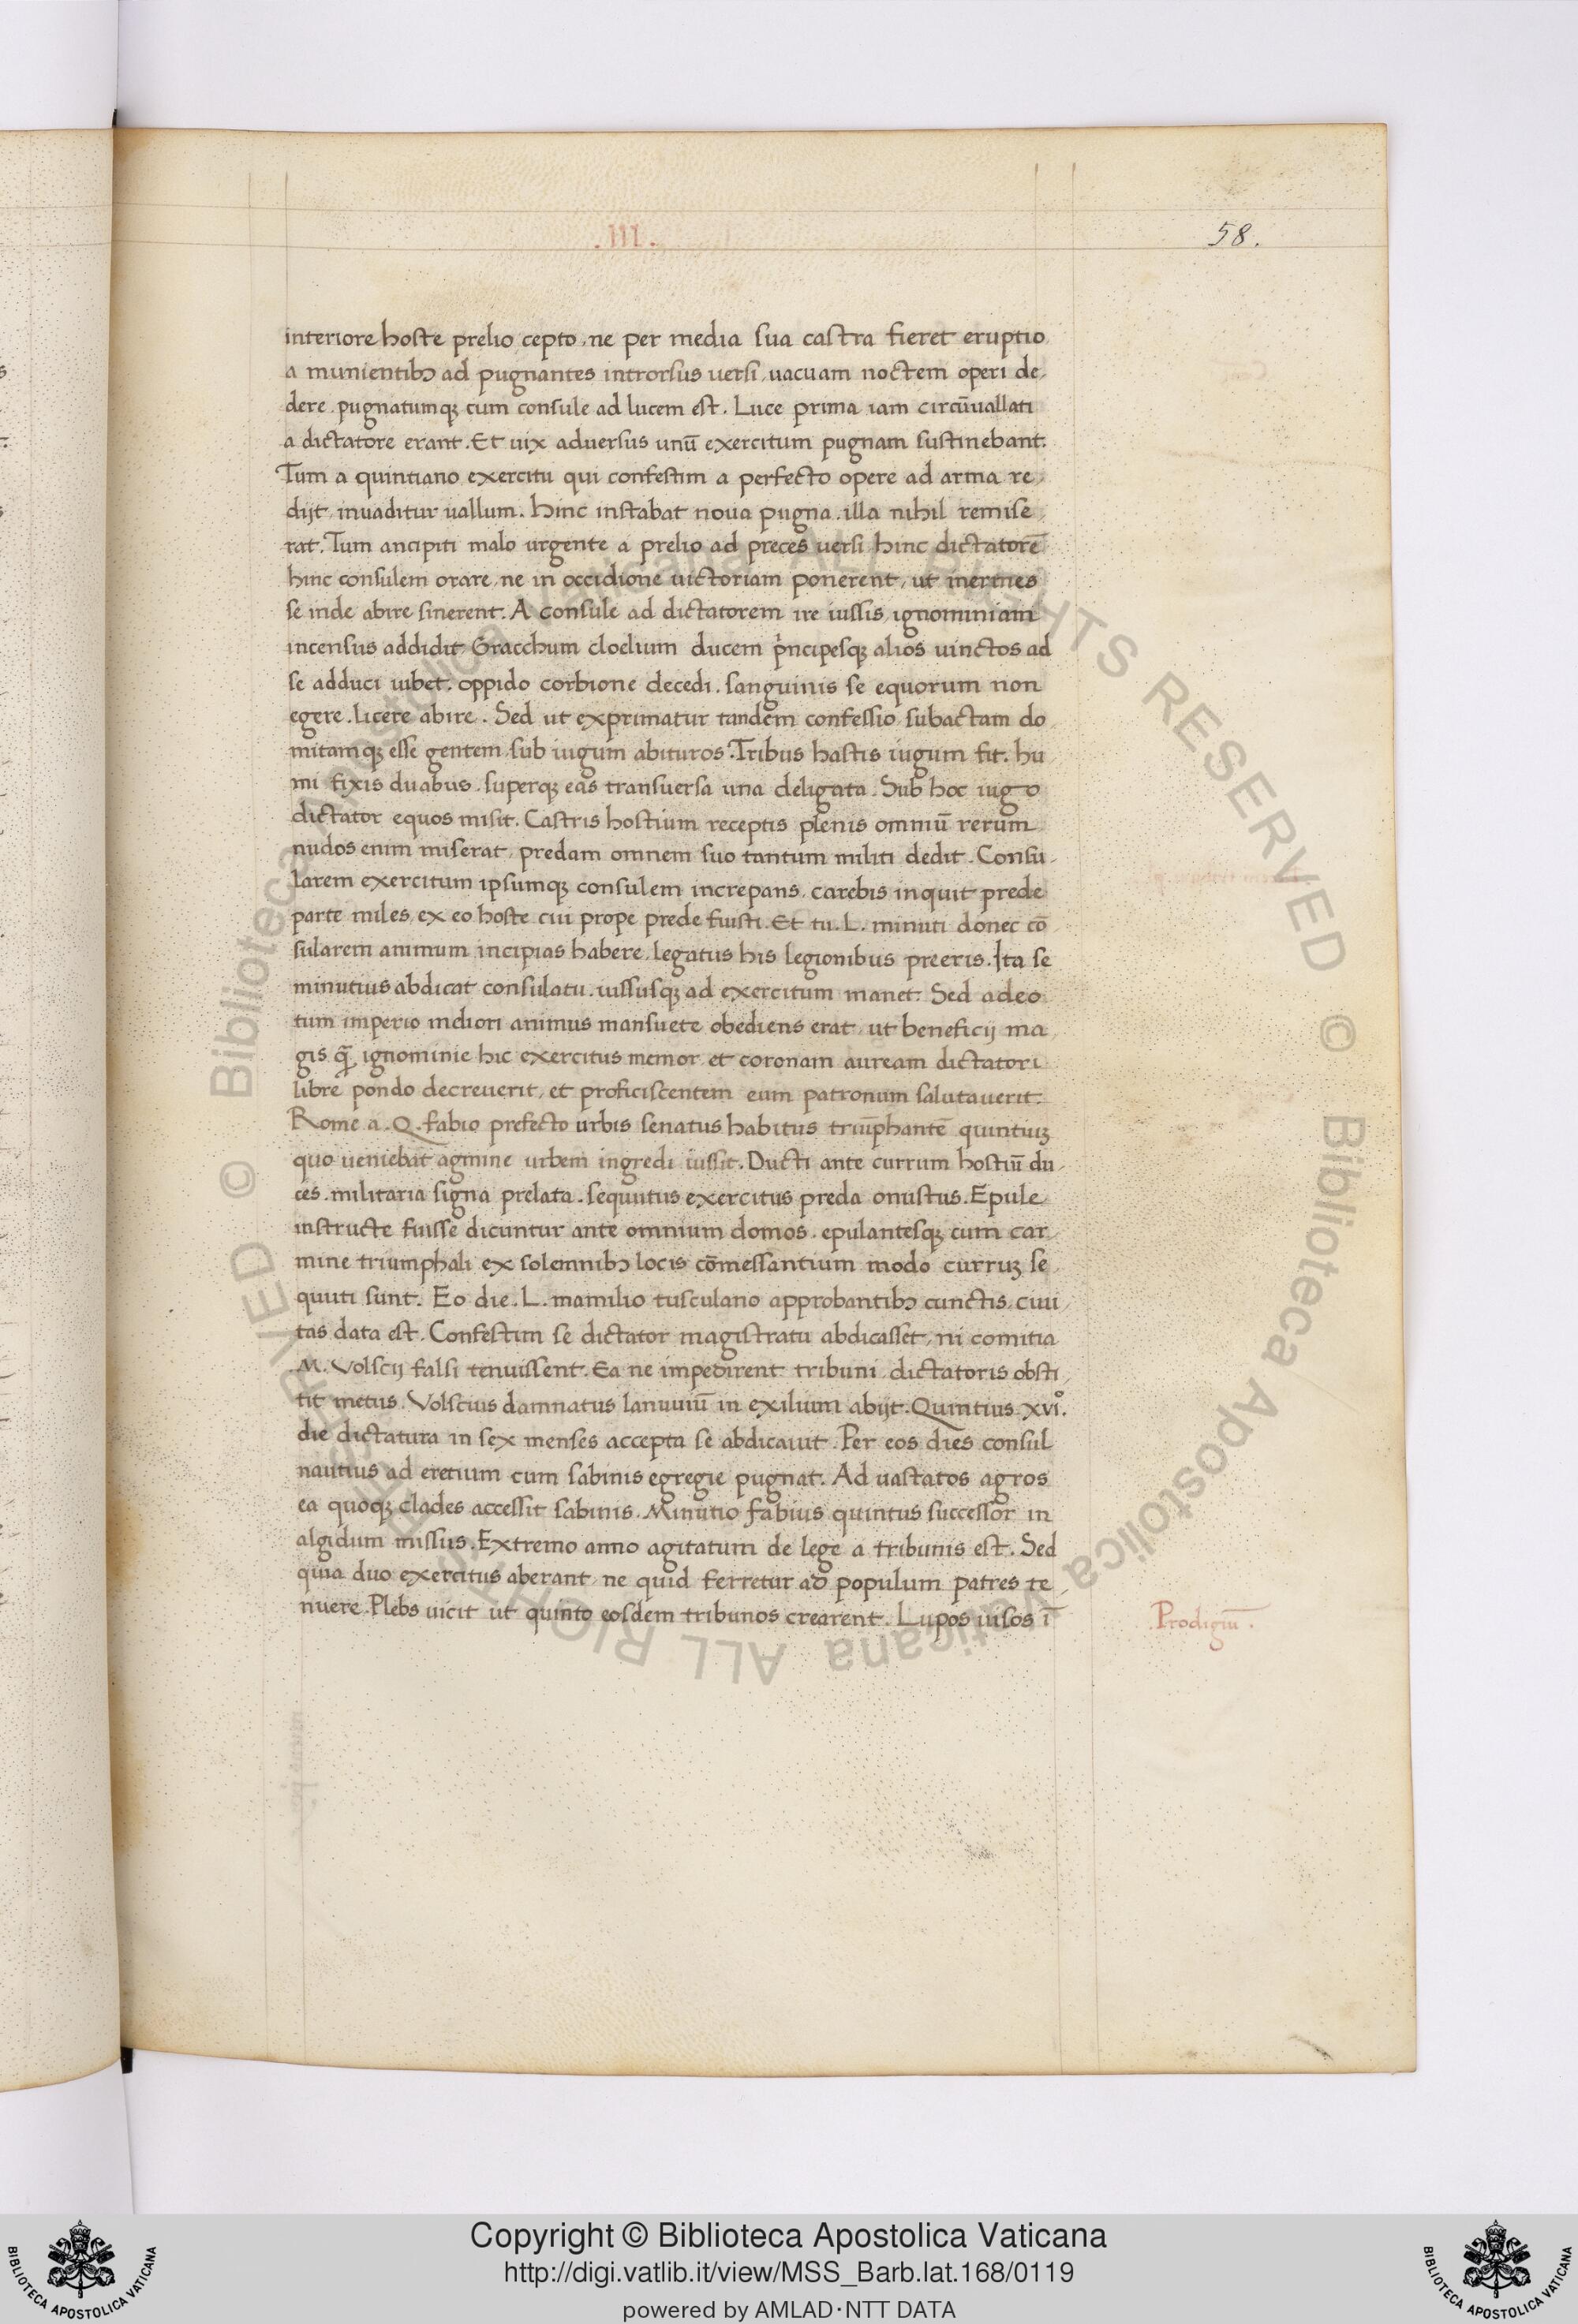 .III.
58.
interiore hoste prelio cepto, ne per media sua castra fieret eruptio
a munientibꝫ ad pugnantes introrsus uersi, uacuam noctem operi de,
dere. pugnatumqꝫ cum consule ad lucem est. Luce prima iam circūuallati
a dictatore erant. Et uix aduersus unū exercitum pugnam sustinebant.
Tum a quintiano exercitu qui confestim a perfecto opere ad arma re,
dijt, inuaditur uallum. hinc instabat noua pugna. illa nihil remise,
rat. Tum ancipiti malo urgente a prelio ad preces uersi hinc dictatorē
hinc consulem orare, ne in occidione uictoriam ponerent, ut inermes
se inde abire sinerent. A consule ad dictatorem ire iussis, ignominiam
incensus addidit Gracchum cloelium ducem p̍ncipesqꝫ alios uinctos ad
se adduci iubet. oppido corbione decedi. sanguinis se equorum non
egere. licere abire. Sed ut exprimatur tandem confessio subactam do,
mitamqꝫ esse gentem, sub iugum abituros. Tribus hastis iugum fit. hu,
mi fixis duabus. superqꝫ eas transuersa una deligata. Sub hoc iugo
dictator equos misit. Castris hostium receptis plenis omniū rerum
nudos enim miserat, predam omnem suo tantum militi dedit. Consu,
larem exercitum ipsumqꝫ consulem increpans, carebis inquit prede
parte miles, ex eo hoste cui prope prede fuisti. Et tu. L. minuti donec cō
sularem animum incipias habere, legatus his legionibus preeris. Ita se
minutius abdicat consulatu. iussusqꝫ ad exercitum manet. Sed adeo
tum imperio meliori animus mansuete obediens erat, ut beneficij ma,
gis q̄ꝫ ignominie hic exercitus memor, et coronam auream dictatori
libre pondo decreuerit, et proficiscentem eum patronum salutauerit.
Rome a. Q. fabio prefecto urbis senatus habitus triūphantē quintiuꝫ
quo ueniebat agmine urbem ingredi iussit. Ducti ante currum hostiū du,
ces. militaria signa prelata. sequutus exercitus preda onustus. Epule
instructe fuisse dicuntur ante omnium domos. epulantesqꝫ cum car,
mine triumphali ex solemnibꝫ locis cōmessantium modo curruꝫ se,
quuti sunt. Eo die. L. mamilio tusculano approbantibꝫ cunctis, ciui,
tas data est. Confestim se dictator magistratu abdicasset, ni comitia
M. Volscij falsi tenuissent. Ea ne impedirent tribuni, dictatoris obsti,
tit metus. Volscius damnatus lanuuiū in exilium abijt. Quintius. xvi°.
die dictatura in sex menses accepta se abdicauit. Per eos dies consul
nautius ad eretium cum sabinis egregie pugnat. Ad uastatos agros
ea quoqꝫ clades accessit sabinis. Minutio fabius quintus successor in
algidum missus. Extremo anno agitatum de lege a tribunis est. Sed
quia duo exercitus aberant, ne quid ferretur ad populum patres te,
nuere. Plebs uicit ut quinto eosdem tribunos crearent. Lupos uisos ī
.Prodigiū.
© Biblioteca Apostolica Vaticana ALL RIGHTS RESERVED
© Biblioteca Apostolica Vaticana ALL RIGHTS RESERVED
BIBLIOTECA APOSTOLICA VATICANA
Copyright © Biblioteca Apostolica Vaticana
http://digi.vatlib.it/view/MSS_Barb.lat.168/0119
powered by AMLAD·NTT DATA
BIBLIOTECA APOSTOLICA VATICANA